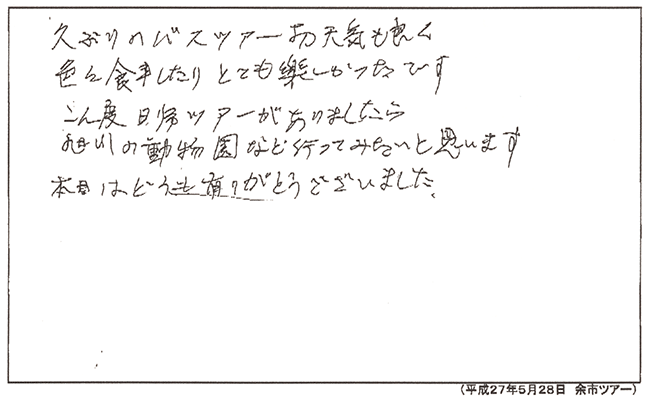 久ぶりのバスツアーお天気も良く
色々食事したりとても楽しかったです
こん度日帰ツアーがありましたら
旭川の動物園など行ってみたいと思います
本日はどうも有りがとうございました。
(平成27年5月28日 余市ツアー)